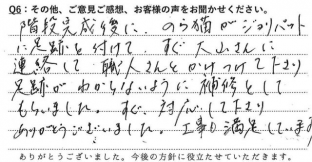 Q6：その他、ご意見ご感想、お客様の声をお聞かせください。
階段完成後に、のら猫がジョリパット
に足跡を付けて すぐ大山さんに
連絡して 職人さんとかけつけて下さり
足跡がわからないように補修をして
もらいました。すぐ対応して下さり
ありがとうございました。工事に満足しています
ありがとうございました。今後の方針に役立たせていただきます。